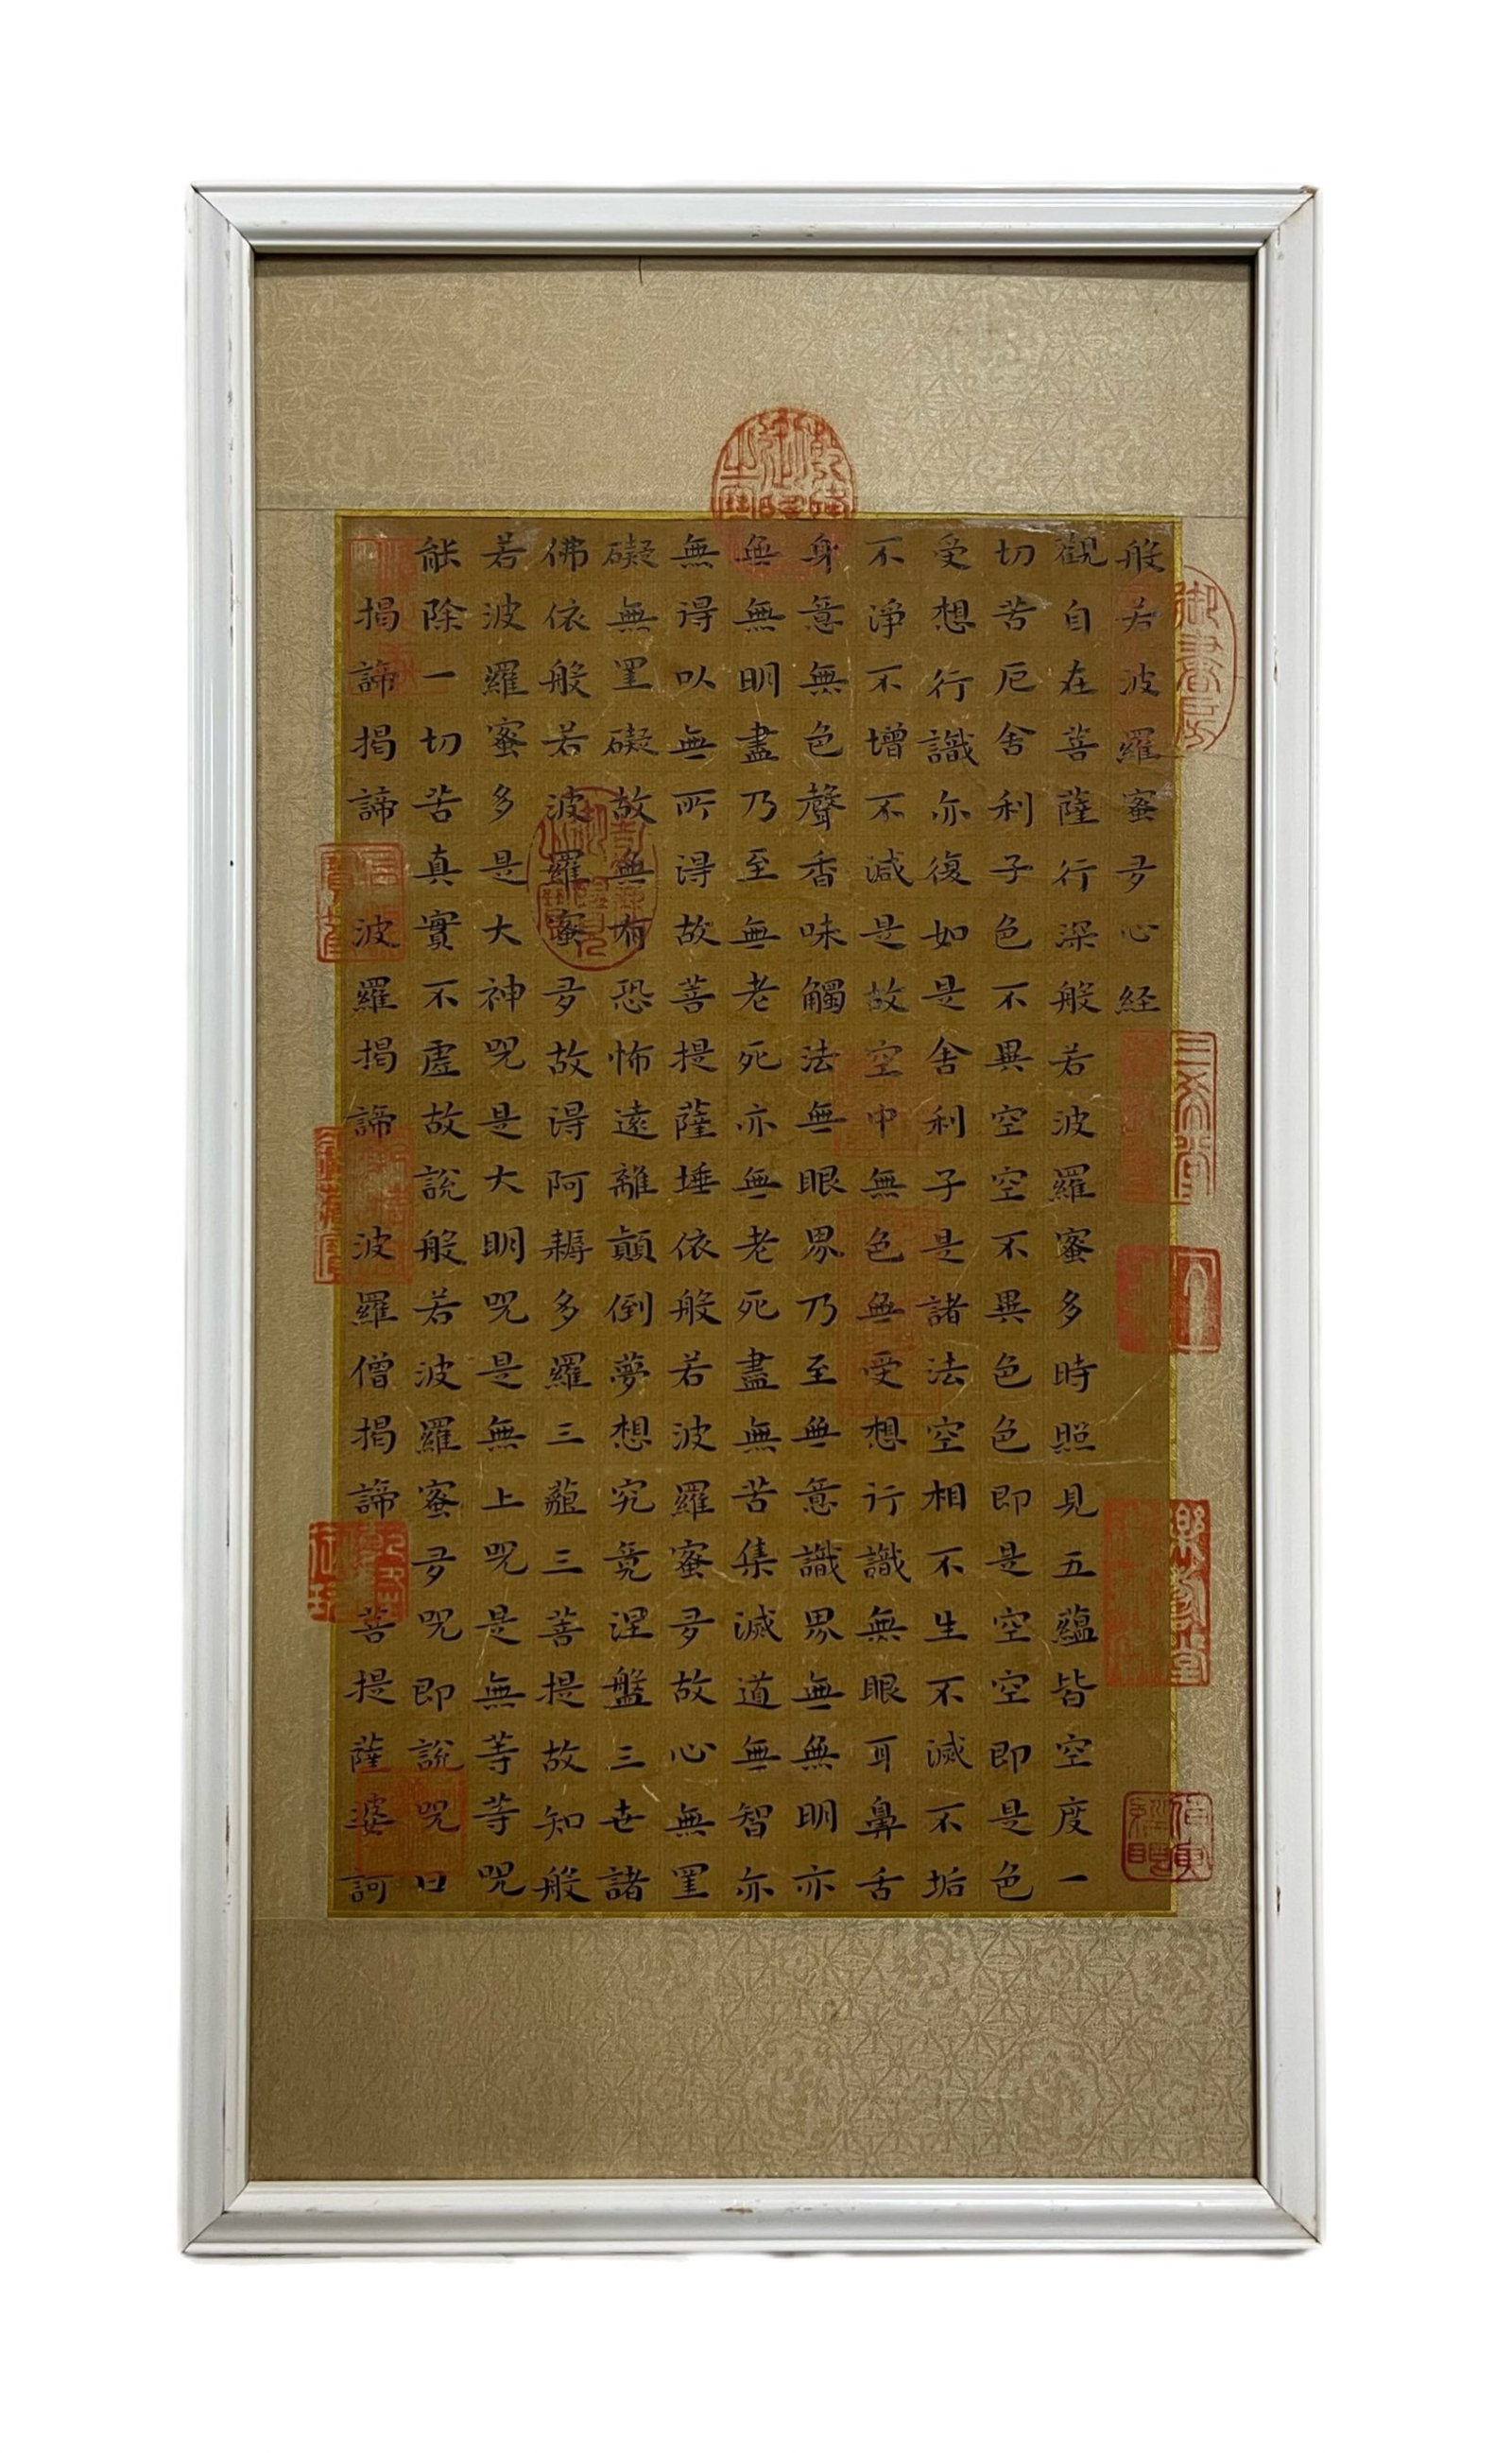 般若波羅蜜夛心経
觀自在菩薩行深般若波羅蜜多時照見五蘊皆空度一
切苦厄舍利子色不異空空不異色色即是空空即是色
受想行識亦復如是舍利子是諸法空相不生不滅不垢
不淨不增不減是故空中無色無受想行識無眼耳鼻舌
身意無色聲香味觸法無眼界乃至無意識界無無明亦
無無明盡乃至無老死亦無老死盡無苦集滅道無智亦
無得以無所得故菩提薩埵依般若波羅蜜夛故心無罣
礙無罣礙故無有恐怖遠離顛倒夢想究竟涅盤三世諸
佛依般若波羅蜜夛故得阿耨多羅三藐三菩提故知般
若波羅蜜多是大神咒是大明咒是無上咒是無等等咒
能除一切苦真實不虛故說般若波羅蜜夛咒即說咒曰
揭諦揭諦 波羅揭諦 波羅僧揭諦 菩提薩婆訶
御書房
三希堂
樂善堂